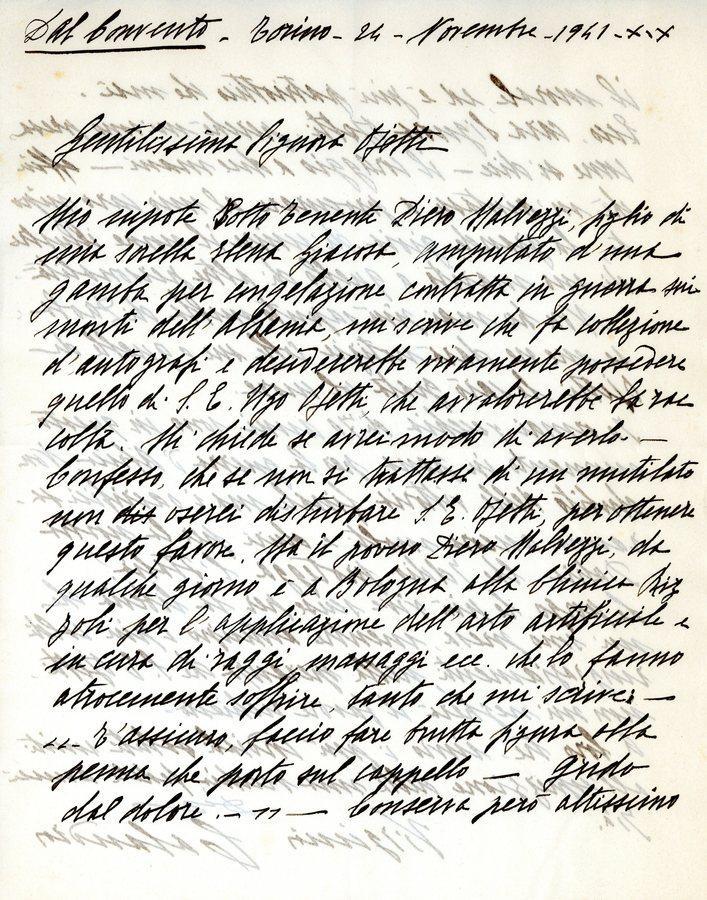 Dal Convento - Torino - 24 - Novembre - 1941 - XX
Gentilissima Signora Ojetti
Mio nipote Sotto Tenente Piero Malvezzi, figlio di
mia sorella Elena Giacosa, amputato d'una
gamba per congelazione contratta in guerra sui
monti dell'Albania, mi scrive che fa collezione
d'autografi e desidererebbe vivamente possedere
quello di S. E. Ugo Ojetti, che avvalorerebbe la rac
colta. Mi chiede se avrei modo di averlo. —
Confesso, che se non si trattasse di un mutilato
non dis oserei disturbare S. E. Ojetti, per ottenere
questo favore. Ma il povero Piero Malvezzi, da
qualche giorno è a Bologna alla Clinica Riz
zoli per l'applicazione dell'arto artificiale e
in cura di raggi, massaggi ecc. che lo fanno
atrocemente soffrire, tanto che mi scrive: —
"— T'assicuro, faccio fare brutta figura alla
penna che porto sul cappello — Grido
dal dolore. — " — Conserva però altissimo